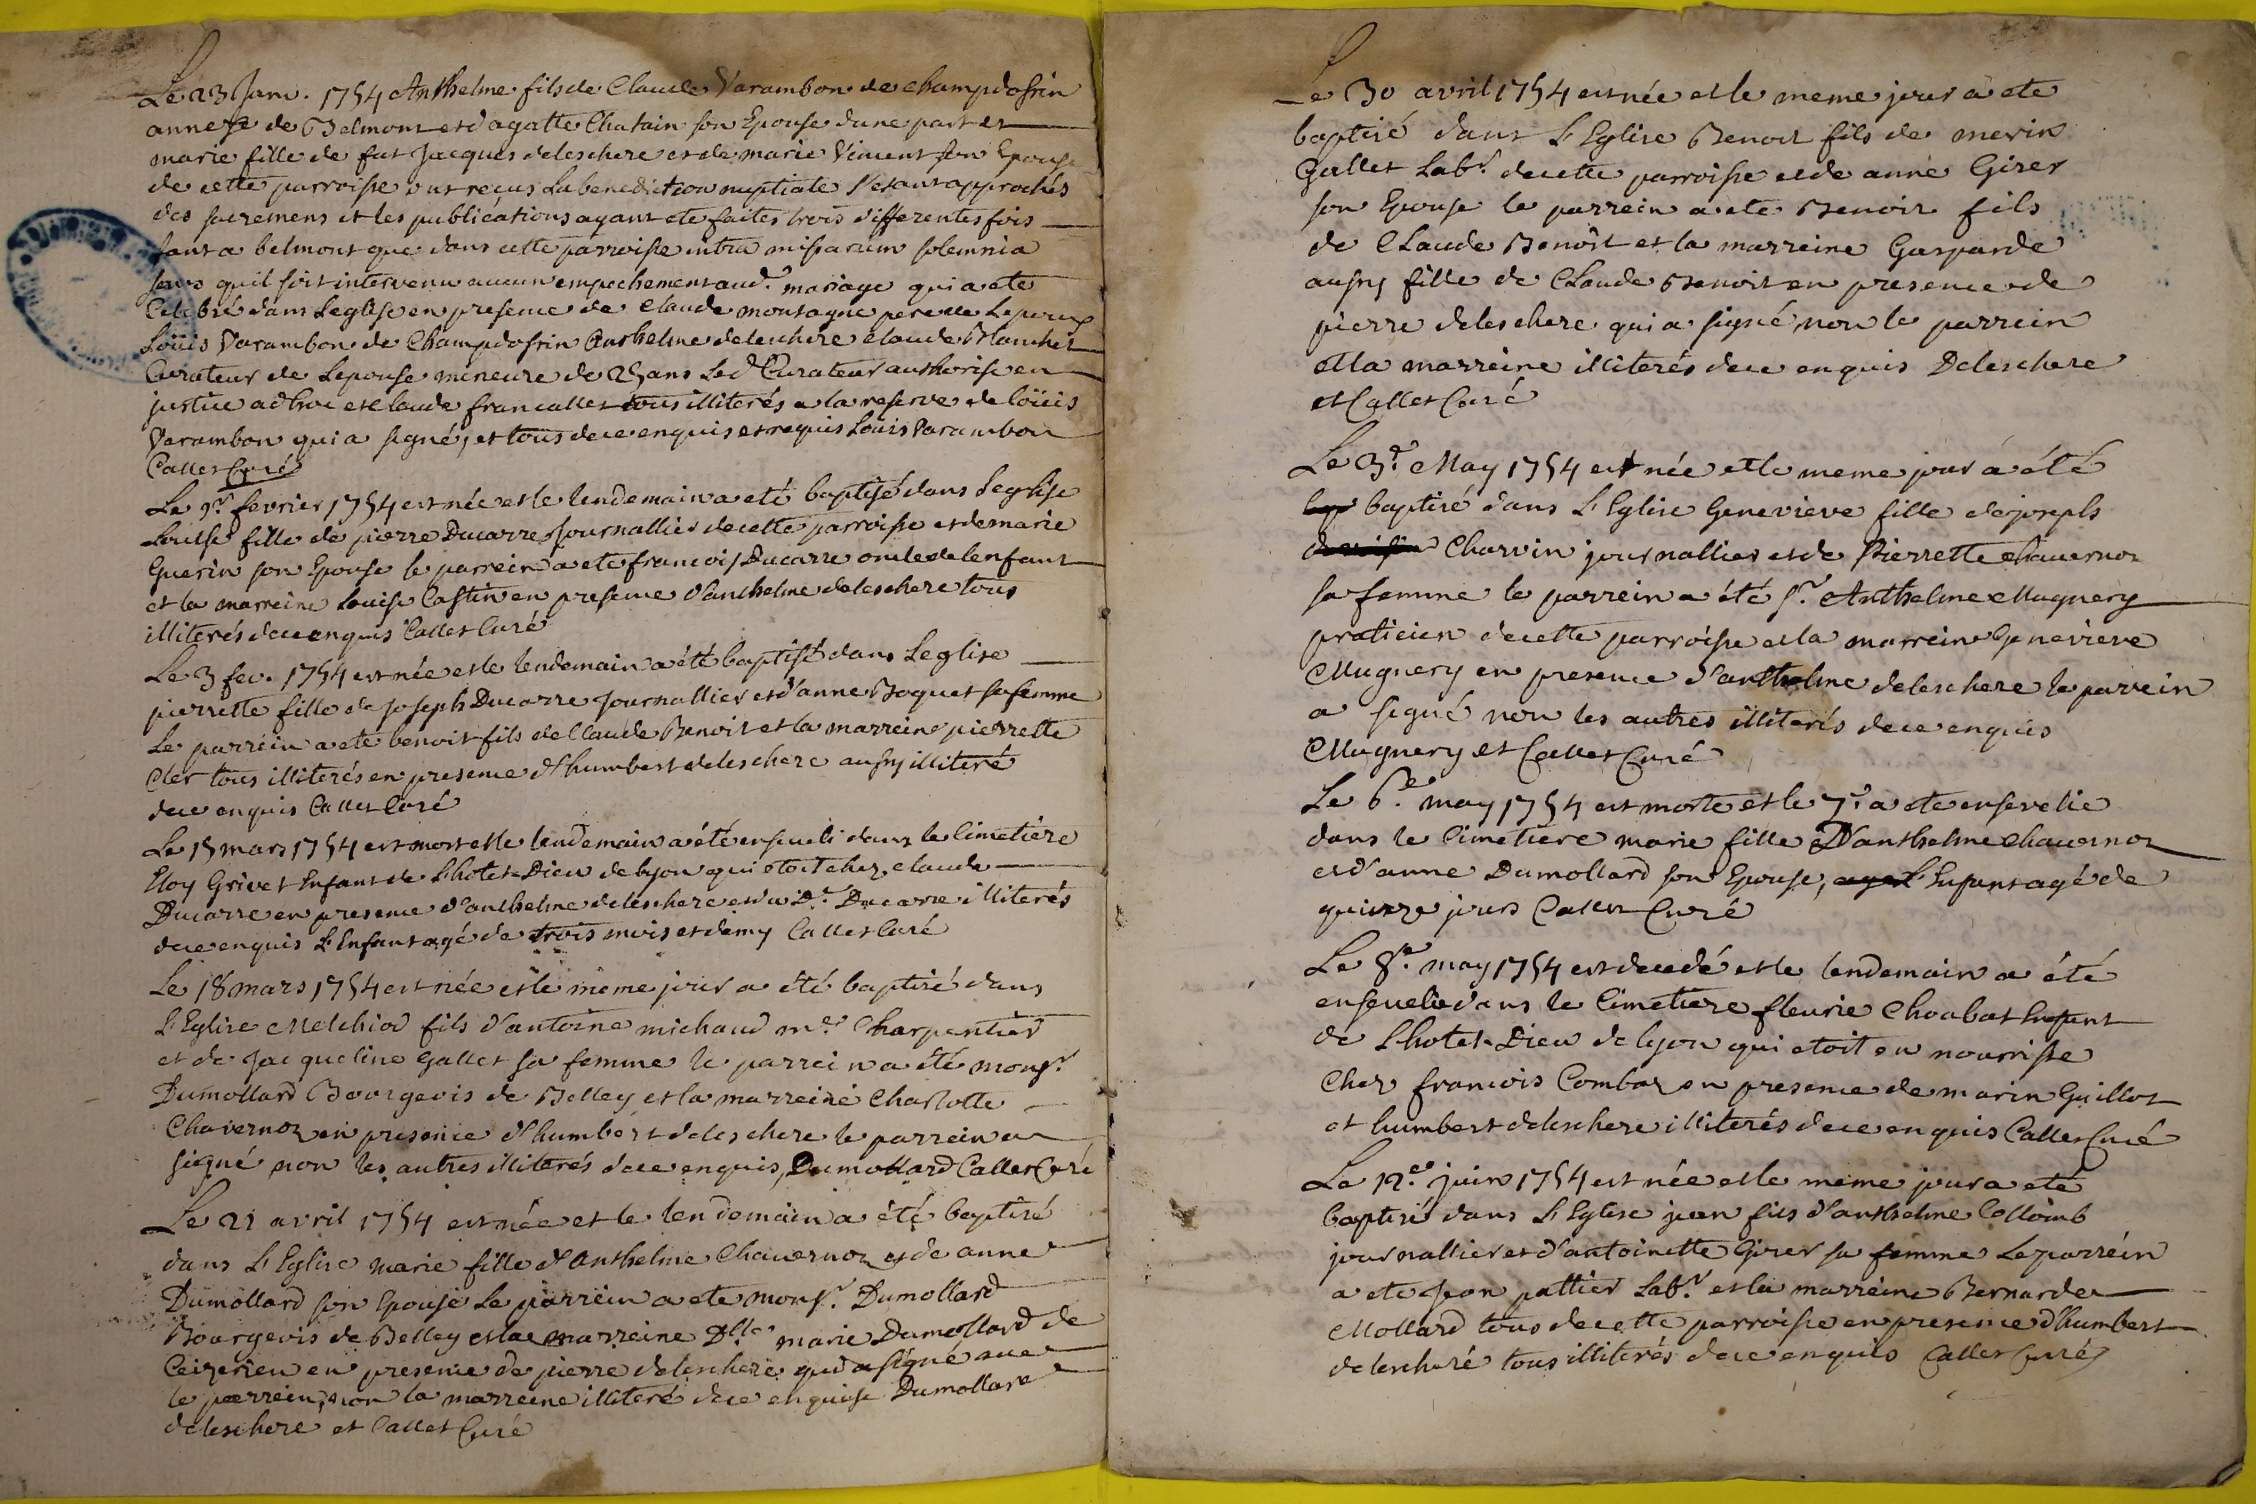 Le 23 Janv. 1754 Anthelme fils de Claude Varambon de Champdossin
annexe de Belmont et d'agatte Chatain son Epouse dune part et
marie fille de fut Jacques deleschere et de marie Vincent son Epouse
de cette parroisse ont recus la benediction nuptiale s'etant approchés
des sacremens et les publications ayant ete faites trois differentes fois
tant a belmont que dans cette parroisse intra missarum solemnia
sans quil soit intervenu aucun empechement aud. mariage qui a ete
Celebré dans Leglise en presence de Claude montagne pere
Loüis Varambon de Champdossin Anthelme deleschere Claude Blanchet
Curateur de Lepouse mineure de 25 ans Led. Curateur authorise en
justice ad hoc et Claude francallet tous illiterés a la reserve de loüis
Varambon qui a signé, et tous de ce enquis et requis Loüis Varambon
Callet Curé
Le 1r. fevrier 1754 est née et le lendemain a eté baptisé dans Leglise
Louise fille de pierre Ducarre Journallier de cette parroisse et de marie
Guerin son Epouse le parrein a ete francois Ducarre oncle de lenfant
et la marreine Louise Castin en presence d'anthelme deleschere tous
illiterés de ce enquis Callet Curé
Le 3 fev. 1754 est née et le lendemain a été baptisé dans Leglise
pierrette fille de Joseph Ducarre Journallier et d'anne Boquet sa femme
Le parrein a ete benoit fils de Claude Benoit et la marreine pierrette
Cler tous illiterés en presence d'humbert deleschere aussy illiteré
de ce enquis Callet Curé
Le 15 mars 1754 est mort et le lendemain a été enseveli dans le Cimetière
Eloy Grivet Enfant de Lhotel-Dieu de lyon qui etoit chez claude
Ducarre en presence d'anthelme deleschere et du Dt. Ducarre illiterés
de ce enquis L'Enfant agé de trois mois et demy Callet Curé
Le 18 mars 1754 est née et le même jour a été baptisé dans
L'Eglise Melchior fils d'antoine michaud me. Charpentier
et de Jacqueline Gallet sa femme le parrein a été monsr.
Dumollard Bourgeois de Belley et la marreine Charlotte
Chavernoz en presence d'humbert deleschere le parrein a
signé non les autres illiterés de ce enquis, Dumollard Callet Curé
Le 21 avril 1754 est née et le lendemain a été baptisé
dans L'Eglise marie fille d'Anthelme Chavernoz et de anne
Dumollard son Epouse Le parrein a ete monsr. Dumollard
Bourgeois de Belley et la marreine Dlle marie Dumollard de
Ceizerieu en presence de pierre deleschere qui a signé avec
le parrein, non la marreine illiteré de ce enquise Dumollard
deleschere et Callet Curé
Le 30 avril 1754 est née et le meme jour a ete
baptisé dans L'Eglise Benoit fils de merin
Gallet Labr. de cette parroisse et de anne Girer
son Epouse le parrein a ete Benoir fils
de Claude Benoît et la marreine Gasparde
aussy fille de Claude Benoit en presence de
pierre deleschere qui a signé non le parrein
et la marreine illiterés de ce enquis Deleschere
et Callet Curé
Le 3e. May 1754 est née et le meme jour a été
baptisé dans L'Eglise Genevieve fille de joseph
Charvin journallier et de Pierrette Chavernoz
sa femme le parrein a été Sr. Anthelme Mugnery
praticien de cette parroisse et la marreine Genevieve
Mugnery en presence d'anthelme deleschere le parrein
a signé non les autres illiterés de ce enquis
Mugnery et Callet Curé
Le 6e. may 1754 est morte et le 7e. a ete ensevelie
dans le Cimetiere marie fille D'anthelme Chavernoz
et d'anne Dumollard son Epouse, L'Enfant agé de
quinze jours Callet Curé
Le 8e. may 1754 est decedé et le lendemain a été
ensevelie dans le Cimetiere fleurie Choubat Enfant
de Lhotel-Dieu de lyon qui etoit en nourrisse
Chez francois Combaz en presence de marin Guillot
et humbert deleschere illiterés de ce enquis Callet Curé
Le 12e. juin 1754 est née et le meme jour a ete
baptisé dans L'Eglise jean fils d'anthelme Collomb
journallier et d'antoinette Girer sa femme Le parrein
a ete Jean pattier Labr. et la marreine Bernarde
Mollard tous de cette parroisse en presence d'humbert
deleschere tous illiterés de ce enquis Callet Curé